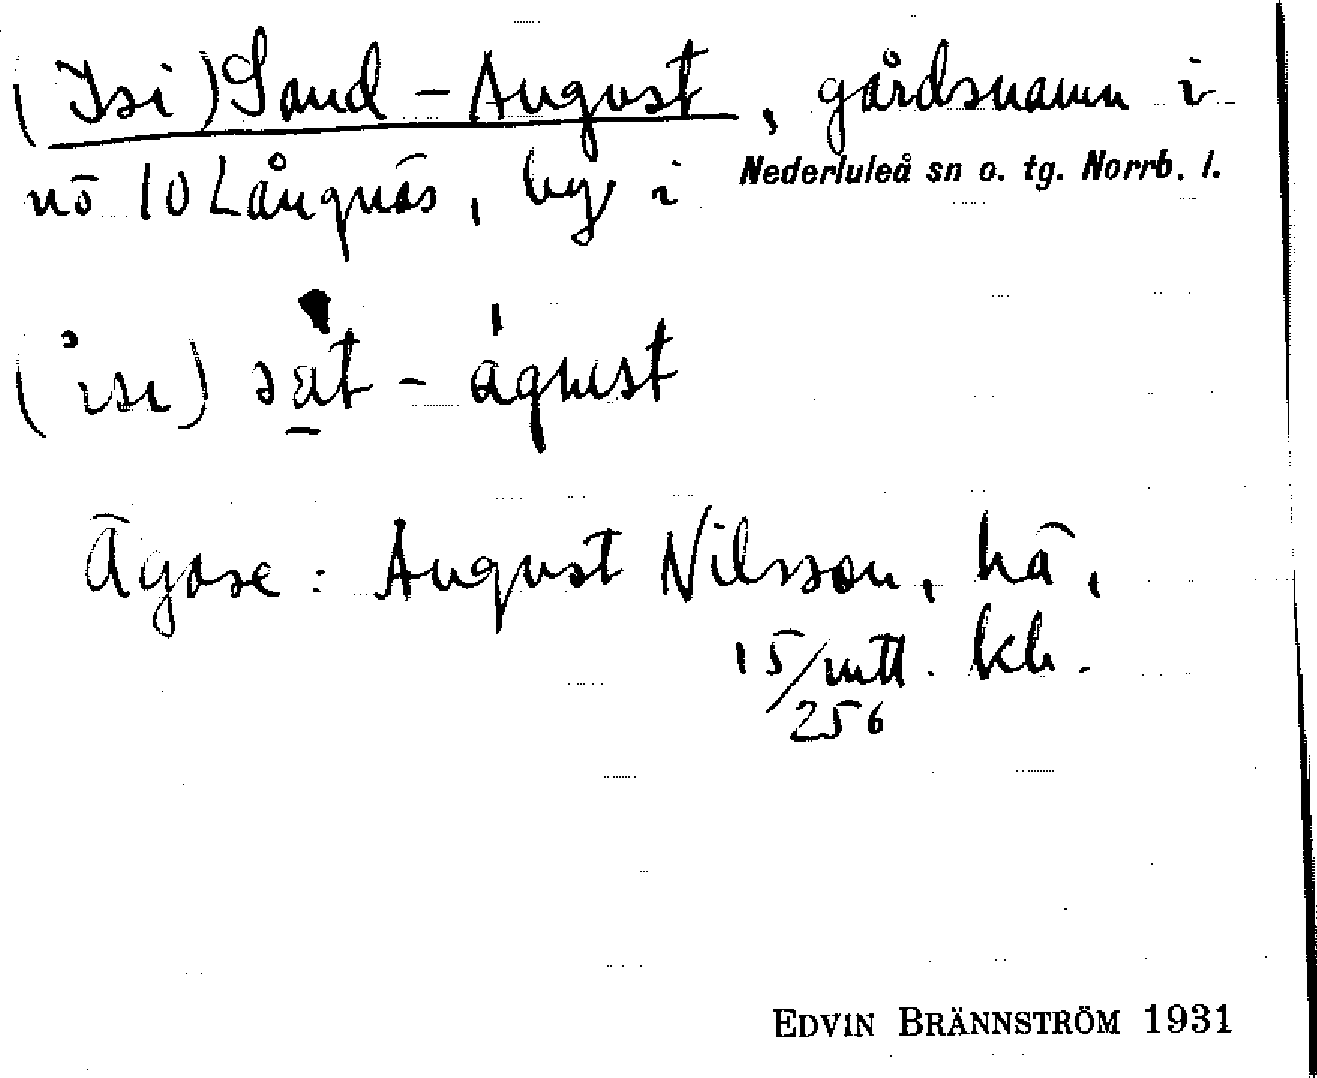 (Isi) Sand-August, gårdsnamn i
nō 10 Långnäs, by i Nederluleå sn o. tg. Norrb. l.
(isi) sat - august
Ägare: August Nilsson, hā,
15/mtl. kb.
256
EDVIN BRÄNNSTRÖM 1931